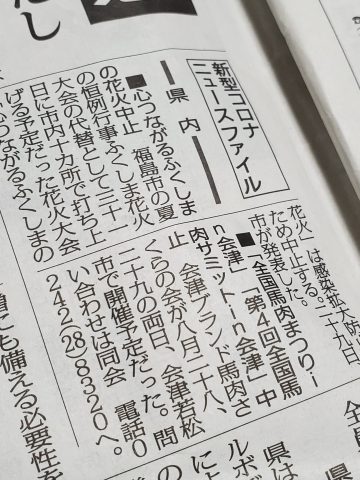 だし
新型コロナ
ニュースファイル
県内
■心つながるふくしま
の花火中止　福島市の夏
の恒例行事ふくしま花火
大会の代替として三十一
日に市内十カ所で打ち上
げる予定だった花火大会
「心つながるふくしまの
花火」は感染拡大防止
ため中止する。二十九日
市が発表した。
■「全国馬肉まつりｉ
ｎ会津」「第4回全国馬
肉サミットｉｎ会津」中
止　会津ブランド馬肉さ
くらの会が八月二十八、
二十九の両日、会津若松
市で開催予定だった。問
い合わせは同会　電話0
242(28)8320へ。
にも備える必要性を
県は